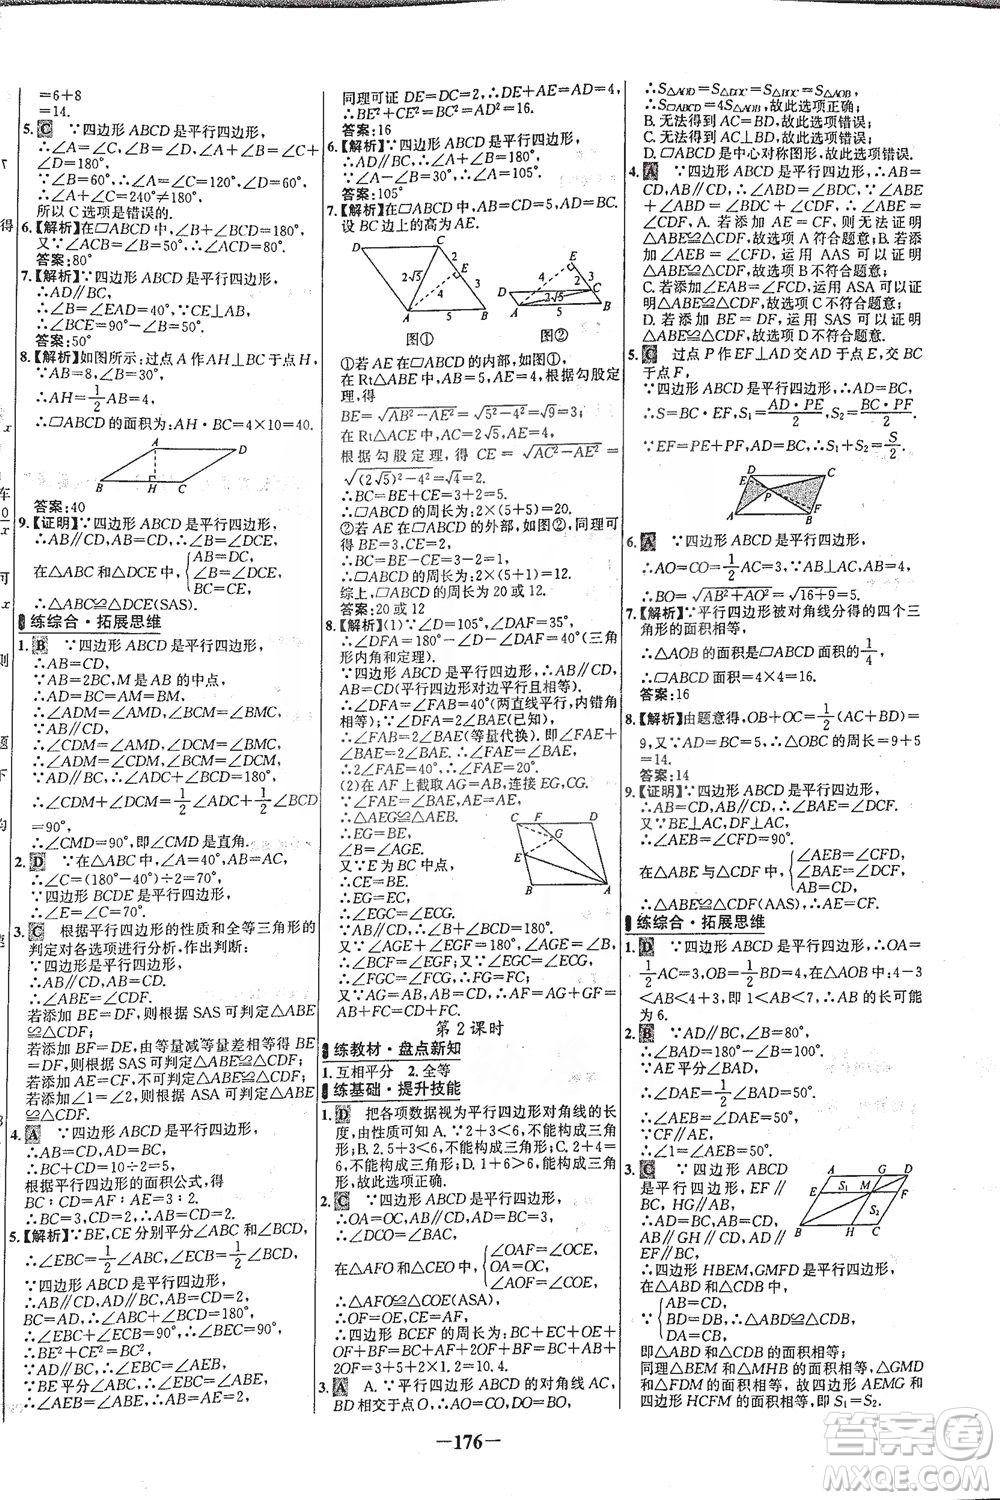 =6+8
=14.
5. C ∵四边形 ABCD 是平行四边形,
∴∠A=∠C,∠B=∠D,∠C+
∠D=180°,
∵∠B=60°,∴∠A=∠C=120°,∠D=60°,
∴∠A+∠C=240°≠180°,
所以 C 选项是错误的.
6.【解析】在▱ABCD 中,∠A+∠B=180°,
又∵∠A-∠B=50°,∴∠B=50°
答案:80°
7.【解析】∵四边形 ABCD 是平行四边形,
∴AD∥BC,
∴∠B=∠EAD=40°,∵CE⊥AB,
∴∠BCE=90°-∠B=50°.
答案:50°
8.【解析】如图所示:过点 A 作 AH⊥BC 于点 H,
∵AB=8,∠B=30°,
∴AH=1/2AB=4,
∴▱ABCD 的面积为:AH·BC=4×10=40.
A D
B H C
答案:40
9.【证明】∵四边形 ABCD 是平行四边形,
∴AB=CD,∠B=∠DCE,
在△ABC 和△DCE 中, {AB=DC,
∠B=∠DCE,
BC=CE,
∴△ABC≌△DCE(SAS).
练综合·拓展思维
1. B ∵四边形 ABCD 是平行四边形,
∴AB=CD,
∵AB=2BC,M 是 AB 的中点,
∴AD=BC=AM=BM,
∴∠ADM=∠AMD,∠BCM=∠BMC,
∵AB∥CD,
∴∠CDM=∠AMD,∠DCM=∠BMC,
∴∠CDM+∠DCM=1/2∠ADC+1/2∠BCD
=90°,
∴∠CMD=90°,即∠CMD 是直角.
2. D ∵在△ABC 中,∠A=40°,AB=AC,
∴∠C=(180°-40°)÷2=70°,
∵四边形 BCDE 是平行四边形,
∴∠E=∠C=70°.
3. C 根据平行四边形的性质和全等三角形的
判定对各选项进行分析,作出判断:
∵四边形 ABCD 是平行四边形,
∴∠ABE=∠CDF.
若添加 BE=DF,则根据 SAS 可判定△ABE
≌△CDF;
若添加 BF=DE,由等量减等量差相等得
BE=DF,则根据 SAS 可判定△ABE≌△CDF;
若添加 AE=CF,是 SSA 不可判定△ABE≌△CDF;
若添加∠1=∠2,则根据 ASA 可判定△ABE
≌△CDF.
4. A ∵四边形 ABCD 是平行四边形,
∴AB=CD,AD=BC,
∴BC+CD=10÷2=5,
根据平行四边形的面积公式,得
BC:CD=AF:AE=3:2.
∴BC=3,CD=2,
5.【解析】∵BE,CE 分别平分∠ABC 和∠BCD,
∴∠EBC=1/2∠ABC,∠ECB=1/2∠BCD,
∵四边形 ABCD 是平行四边形,
∴AB∥CD,AD∥BC,AB=CD,
BC=AD,∴∠ABC+∠BCD=180°,
∴∠EBC+∠ECB=90°,∴∠BEC=90°,
∴BE²+CE²=BC²,
∵AD∥BC,∴∠EBC=∠AEB,
∵BE 平分∠ABC,∴∠EBC=∠ABE,
∴∠AEB=∠ABE,∴AB=AE=2,
同理可证 DE=DC=2,∴DE+AE=AD=4,
∴BE²+CE²=BC²=AD²=16.
答案:16
6.【解析】∵四边形 ABCD 是平行四边形,
∴AD∥BC,∴∠A+∠B=180°,
∵∠A-∠B=30°,∴∠A=105°.
答案:105°
7.【解析】在▱ABCD 中,AB=CD=5,AD=BC.
设 BC 边上的高为 AE.
D C E A B 2√5 4 2 3 5
图①
D E C A B 4 2 3 2√5 5
图②
①若 AE 在▱ABCD 的内部,如图①,
在 Rt△ABE 中,AB=5,AE=4,根据勾股定
理,得
BE=√(AB²-AE²)=√(5²-4²)=√9=3;
在 Rt△ACE 中,AC=2√5,AE=4,
根据勾股定理,得 CE=√(AC²-AE²)=
√((2√5)²-4²)=√4=2,
∴BC=BE+CE=3+2=5,
∴▱ABCD 的周长为:2×(5+5)=20.
②若 AE 在▱ABCD 的外部,如图②,同理可
得 BE=3,CE=2,∴BC=BE-CE=3-2=1,
∴▱ABCD 的周长为:2×(5+1)=12.
综上,▱ABCD 的周长为 20 或 12.
答案:20 或 12
8.【解析】(1)∵∠D=105°,∠DAF=35°,
∴∠DFA=180°-∠D-∠DAF=40°(三角
形内角和定理).
∵四边形 ABCD 是平行四边形,
∴AB∥CD(平行四边形对边平行且相等).
∴∠DFA=∠FAB=40°(两直线平行,内错角
相等);∵∠DFA=2∠BAE(已知),
∴∠FAB=2∠BAE(等量代换).即∠FAE+
∠BAE=2∠BAE.∴∠FAE=∠BAE;
∴2∠FAE=40°,∴∠FAE=20°;
(2)在 AF 上截取 AG=AB,连接 EG,CG.
∴△AEG≌△AEB.
∴EG=BE,
∠B=∠AGE.
又∵E 为 BC 中点,
∴CE=BE.
∴EG=EC,
∴∠EGC=∠ECG.
C F D G E B A
∵AB∥CD,∴∠B+∠BCD=180°.
又∵∠AGE+∠EGF=180°,∠AGE=∠B,
∴∠BCF=∠EGF.
又∵∠EGC=∠ECG,∴∠FGC=∠FCG,
∴FG=FC,
又∵AG=AB,AB=CD,∴AF=AG+GF=
AB+FC=CD+FC.
第 2 课时
练教材·盘点新知
1. 互相平分 2. 全等
练基础·提升技能
1. D 把各项数据视为平行四边形对角线的长
度,由性质可知 A.∵2+3<6,不能构成三角
形;B.2.5+3<6,不能构成三角形;C.2+4=
6,不能构成三角形;D.1+6>6,能构成三角
形,故此选项正确.
2. C ∵四边形 ABCD 是平行四边形,
∴OA=OC,AD=BC=3,
在△AFO 和△CEO 中, {∠OAF=∠OCE,
OA=OC,
∠AOF=∠COE,
∴△AFO≌△COE(ASA),
∴OF=OE,CE=AF,
∴四边形 BCEF 的周长=BC+EC+OE+
OF+BF=AB+AF+2OF+BF=BC+BA+
2OF=3+5+2×1.2=10.4.
3. A A.∵平行四边形 ABCD 的对角线 AC,
BD 相交于点 O,∴AO=OC,DO=BO,
∴S△AOD=S△DOC=S△BOC=S△AOB,
∴S▱ABCD=4S△AOB,故此选项正确;
B. 无法得到 AC=BD,故此选项错误;
C. 无法得到 AC⊥BD,故此选项错误;
D. ▱ABCD 是中心对称图形,故此选项错误.
4. A ∵四边形 ABCD 是平行四边形,∴AB=
CD,AB∥CD,∴∠ABD=∠BDC,∵∠ABE
=∠CDF,A. 若添加 AE=CF,则无法证明
△ABE≌△CDF,故选项 A 符合题意;B. 若添
加∠AEB=∠CFD,运用 AAS 可以证明
△ABE≌△CDF,故选项 B 不符合题意;
C. 若添加∠EAB=∠FCD,运用 ASA 可以证
明△ABE≌△CDF,故选项 C 不符合题意;
D. 若添加 BE=DF,运用 SAS 可以证明
△ABE≌△CDF,故选项 D 不符合题意.
5. C 过点 P 作 EF⊥AD 交 AD 于点 E,交 BC
于点 F,
∵四边形 ABCD 是平行四边形,∴AD=BC,
∴S=BC·EF,S₁=AD·PE/2,S₂=BC·PF/2,
∵EF=PE+PF,AD=BC,∴S₁+S₂=S/2.
D C E P A B F
6. A ∵四边形 ABCD 是平行四边形,
∴AO=CO=1/2AC=3,∵AB⊥AC,AB=4,
∴BO=√(AB²+AO²)=√(16+9)=5.
7.【解析】∵平行四边形被对角线分得的四个三
角形的面积相等,
∴△AOB 的面积是▱ABCD 面积的1/4,
∴▱ABCD 面积=4×4=16.
答案:16
8.【解析】由题意得,OB+OC=1/2(AC+BD)=
9,又∵AD=BC=5,∴△OBC 的周长=9+5
=14.
答案:14
9.【证明】∵四边形 ABCD 是平行四边形,
∴AB=CD,AB∥CD,∴∠BAE=∠FCD,
又∵BE⊥AC,DF⊥AC,
∴∠AEB=∠CFD=90°,
在△ABE 与△CDF 中, {∠AEB=∠CFD,
∠BAE=∠FCD,
AB=CD,
∴△ABE≌△CDF(AAS),∴AE=CF.
练综合·拓展思维
1. D ∵四边形 ABCD 是平行四边形,∴OA=
1/2AC=3,OB=1/2BD=4,在△AOB 中:4-3
<AB<4+3,即 1<AB<7,∴AB 的长可能
为 6.
2. B ∵AD∥BC,∠B=80°,
∴∠BAD=180°-∠B=100°.
∵AE 平分∠BAD,
∴∠DAE=1/2∠BAD=50°.
∴∠AEB=∠DAE=50°,
∵CF∥AE,
∴∠1=∠AEB=50°.
3. C ∵四边形 ABCD
是平行四边形,EF∥
BC,HG∥AB,
∴AD=BC,AB=CD,
AB∥GH∥CD,AD∥EF∥BC,
∴四边形 HBEM,GMFD 是平行四边形,
A G D E S₁ M F S₂ B H C
在△ABD 和△CDB 中,
∵ {AB=CD,
BD=DB,
DA=CB,
∴△ABD≌△CDB(SSS),
即△ABD 和△CDB 的面积相等;
同理△BEM 和△MHB 的面积相等,△GMD
和△FDM 的面积相等,故四边形 AEMG 和
四边形 HCFM 的面积相等,即 S₁=S₂.
—176—
答案圈
MXQE.COM